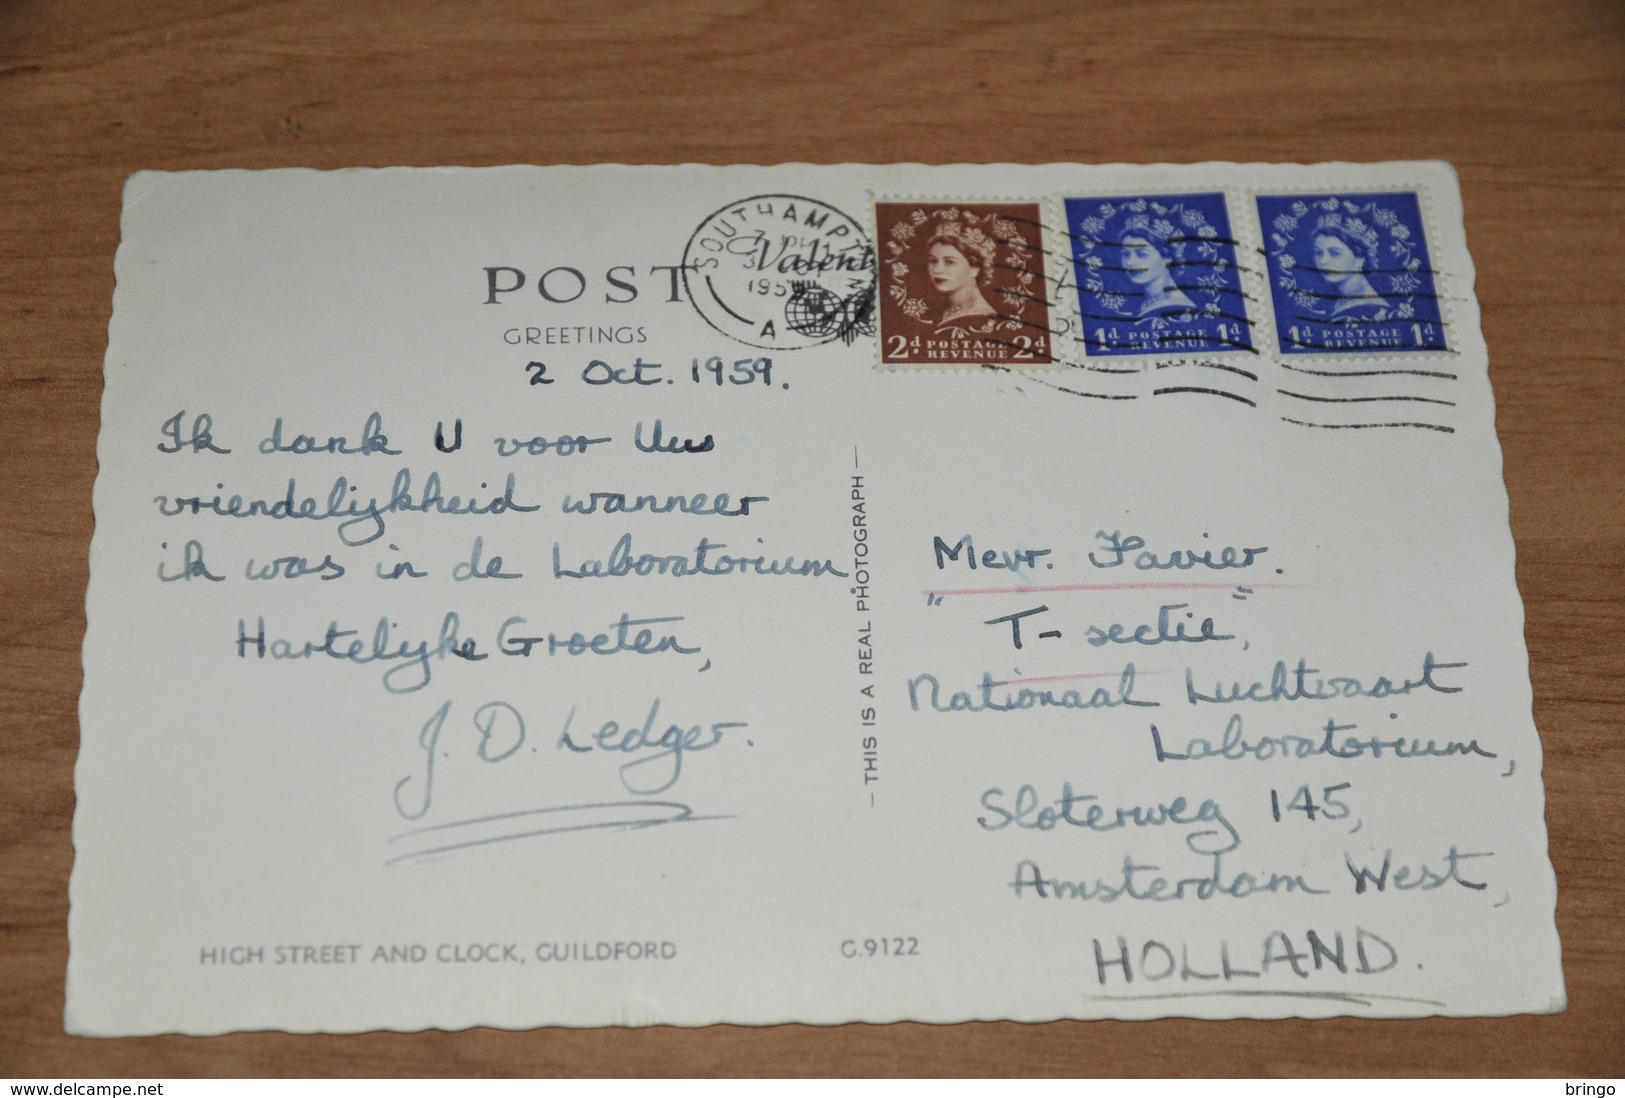 POST
GREETINGS
SOUTHAMPTON
1959
A
Valent
2d POSTAGE REVENUE 2d
1d POSTAGE REVENUE 1d
1d POSTAGE REVENUE 1d
2 Oct. 1959.
Ik dank U voor Uw
vriendelijkheid wanneer
ik was in de Laboratorium
Hartelijke Groeten,
J. D. Ledger.
HIGH STREET AND CLOCK, GUILDFORD
G.9122
— THIS IS A REAL PHOTOGRAPH —
Mevr. Favier.
"T-sectie",
Nationaal Luchtvaart
Laboratorium,
Sloterweg 145,
Amsterdam West,
HOLLAND.
http://www.delcampe.net
bringo